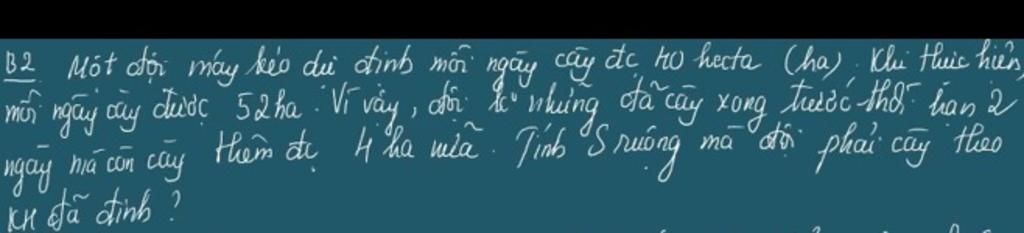 B2 Một đội máy kéo dự định mỗi ngày cày đc 40 hecta (ha). Khi thực hiện,
mỗi ngày cày được 52ha. Vì vậy, đội k° những đã cày xong trước thời hạn 2
ngày mà còn cày thêm đc 4 ha nữa. Tính S ruộng mà đội phải cày theo
KH đã định?